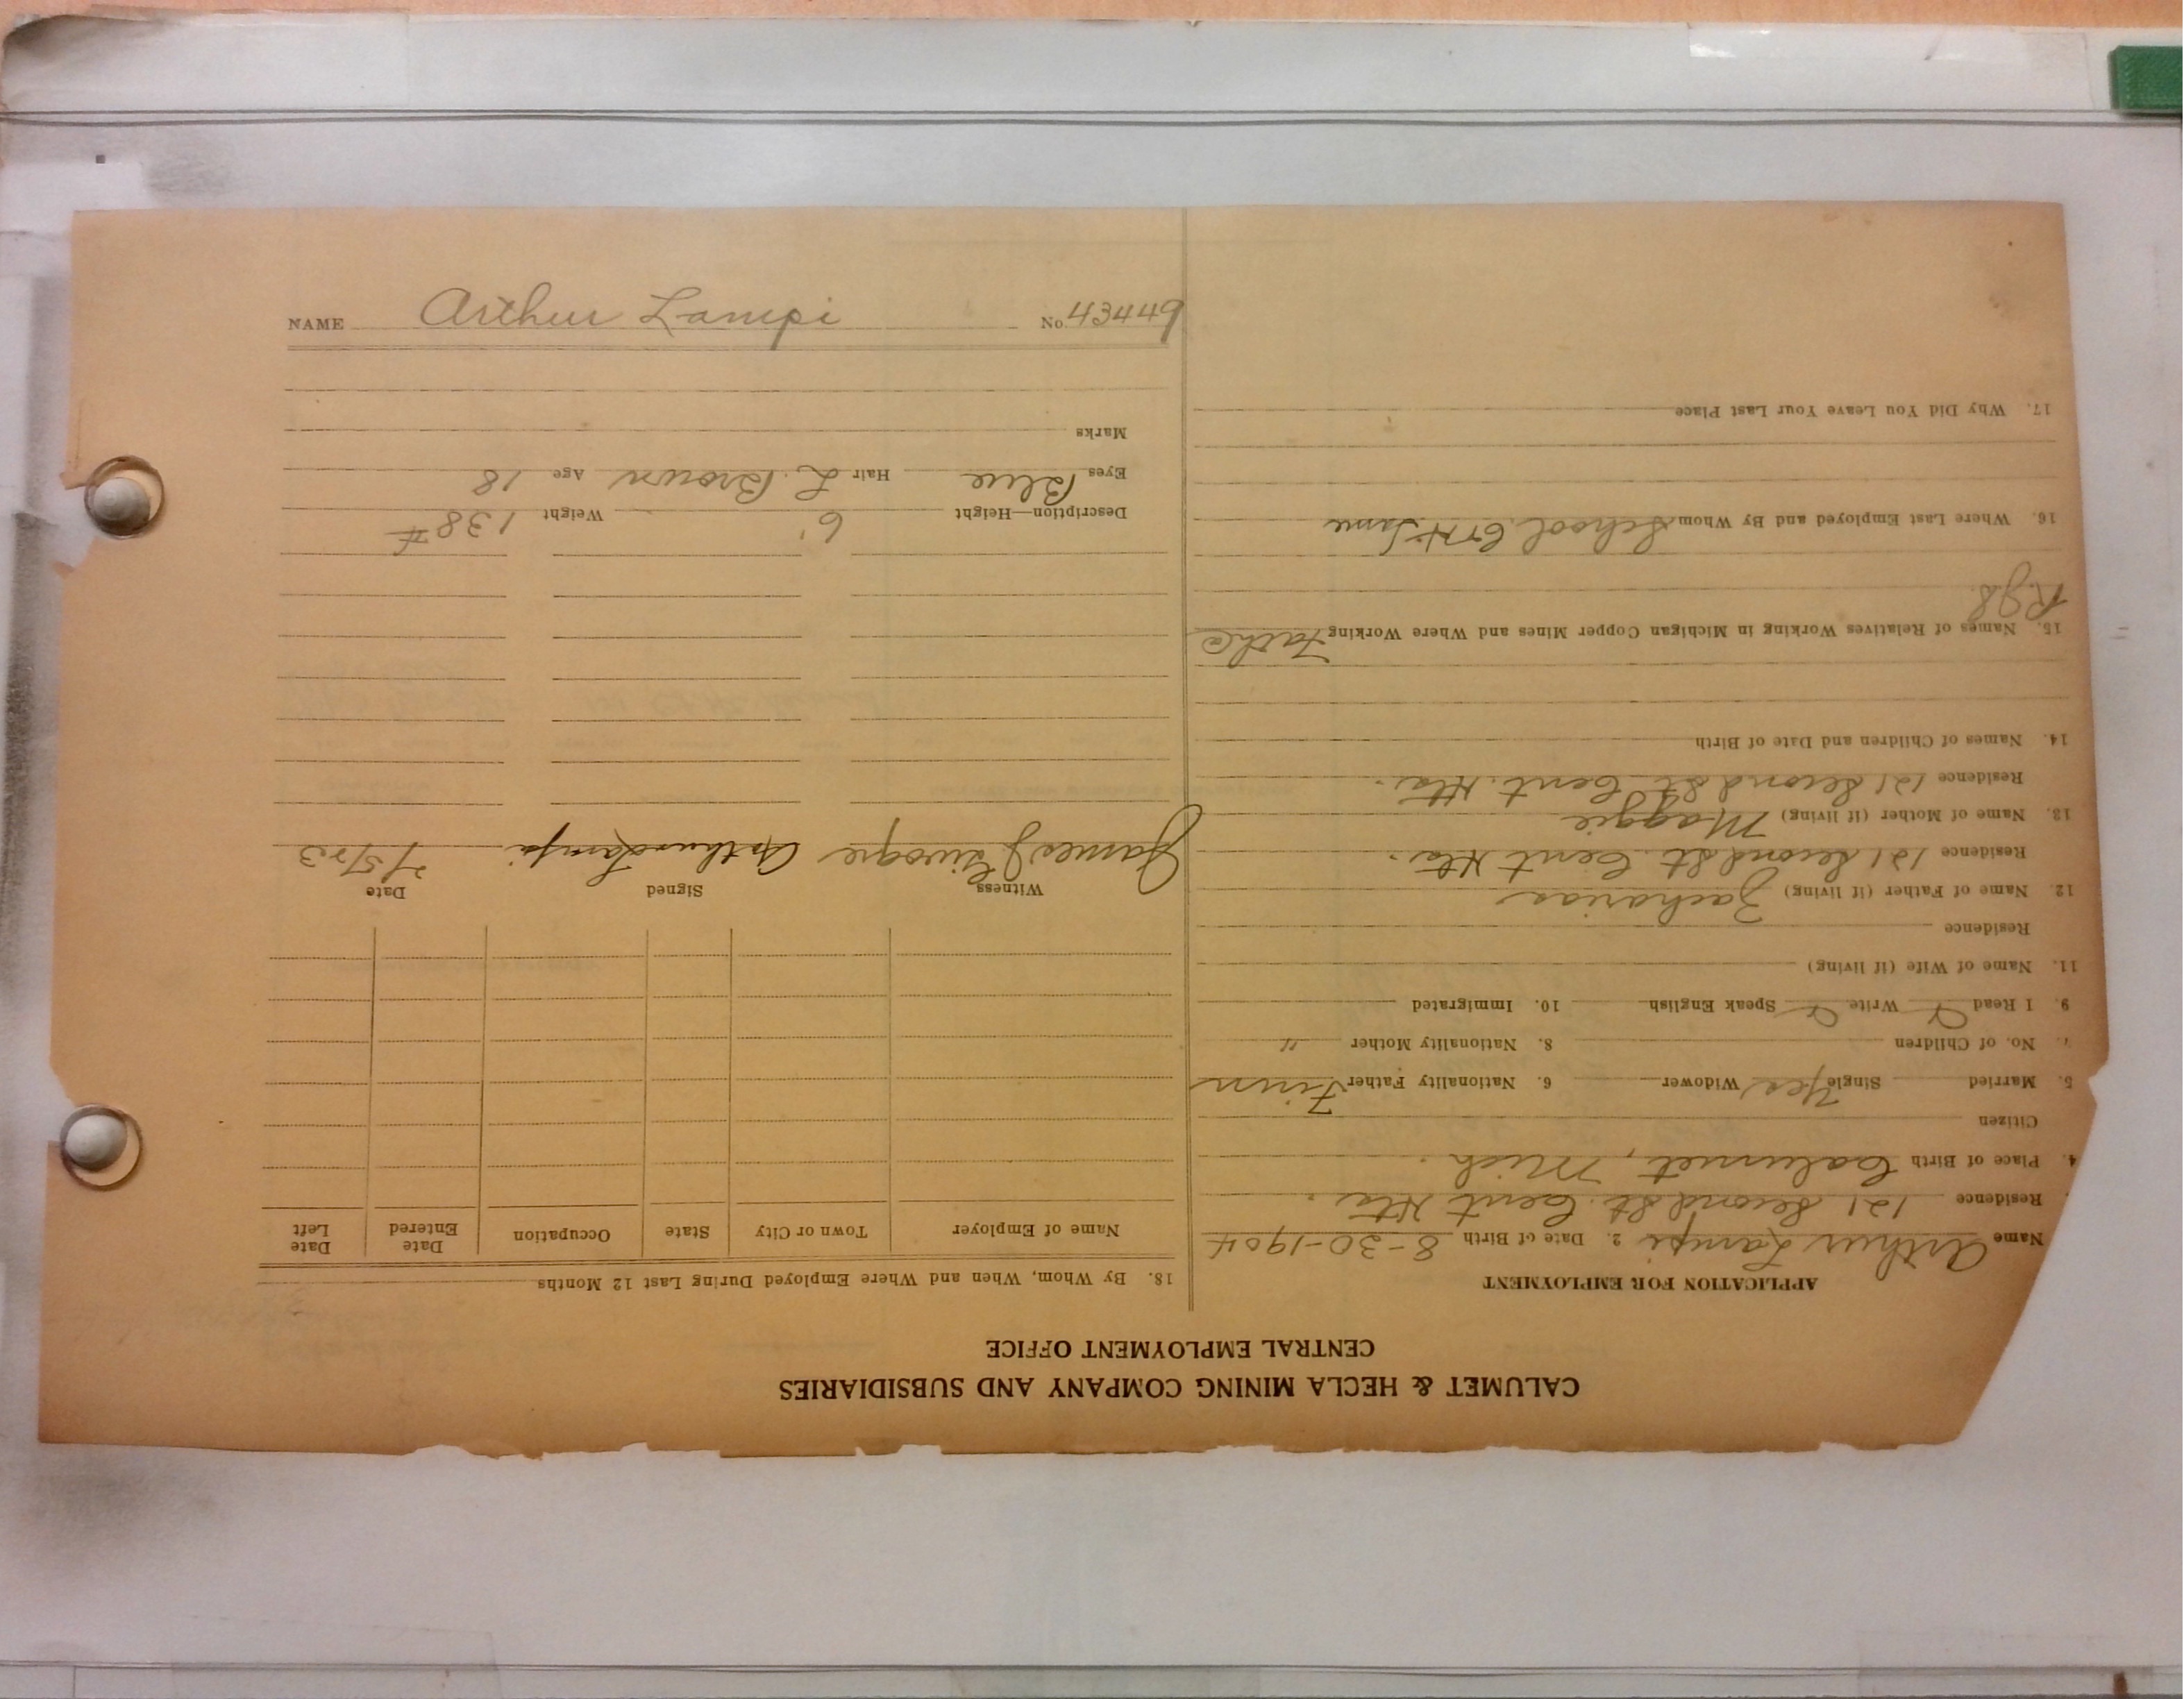 CALUMET & HECLA MINING COMPANY AND SUBSIDIARIES
CENTRAL EMPLOYMENT OFFICE
APPLICATION FOR EMPLOYMENT
Name Arthur Lampi 2. Date of Birth 8-30-1904
Residence 121 Second St. Cent Hts.
4. Place of Birth Calumet, Mich.
Citizen
5. Married Single Yes Widower 6. Nationality Father Finn
7. No. of Children 8. Nationality Mother "
9. I Read Write Speak English 10. Immigrated
11. Name of Wife (if living)
Residence
12. Name of Father (if living) Zacharias
Residence 121 Second St. Cent Hts.
13. Name of Mother (if living) Maggie
Residence 121 Second St Cent. Hts.
14. Names of Children and Date of Birth
15. Names of Relatives Working in Michigan Copper Mines and Where Working Father
16. Where Last Employed and By Whom School C+H Same
17. Why Did You Leave Your Last Place
18. By Whom, When and Where Employed During Last 12 Months
Name of Employer Town or City State Occupation Date Entered Date Left
Witness Signed Date
James J Arthur Lampi 7/5/23
Description—Height 6' Weight 138 #
Eyes Blue Hair L. Brown Age 18
Marks
NAME Arthur Lampi No. 43449